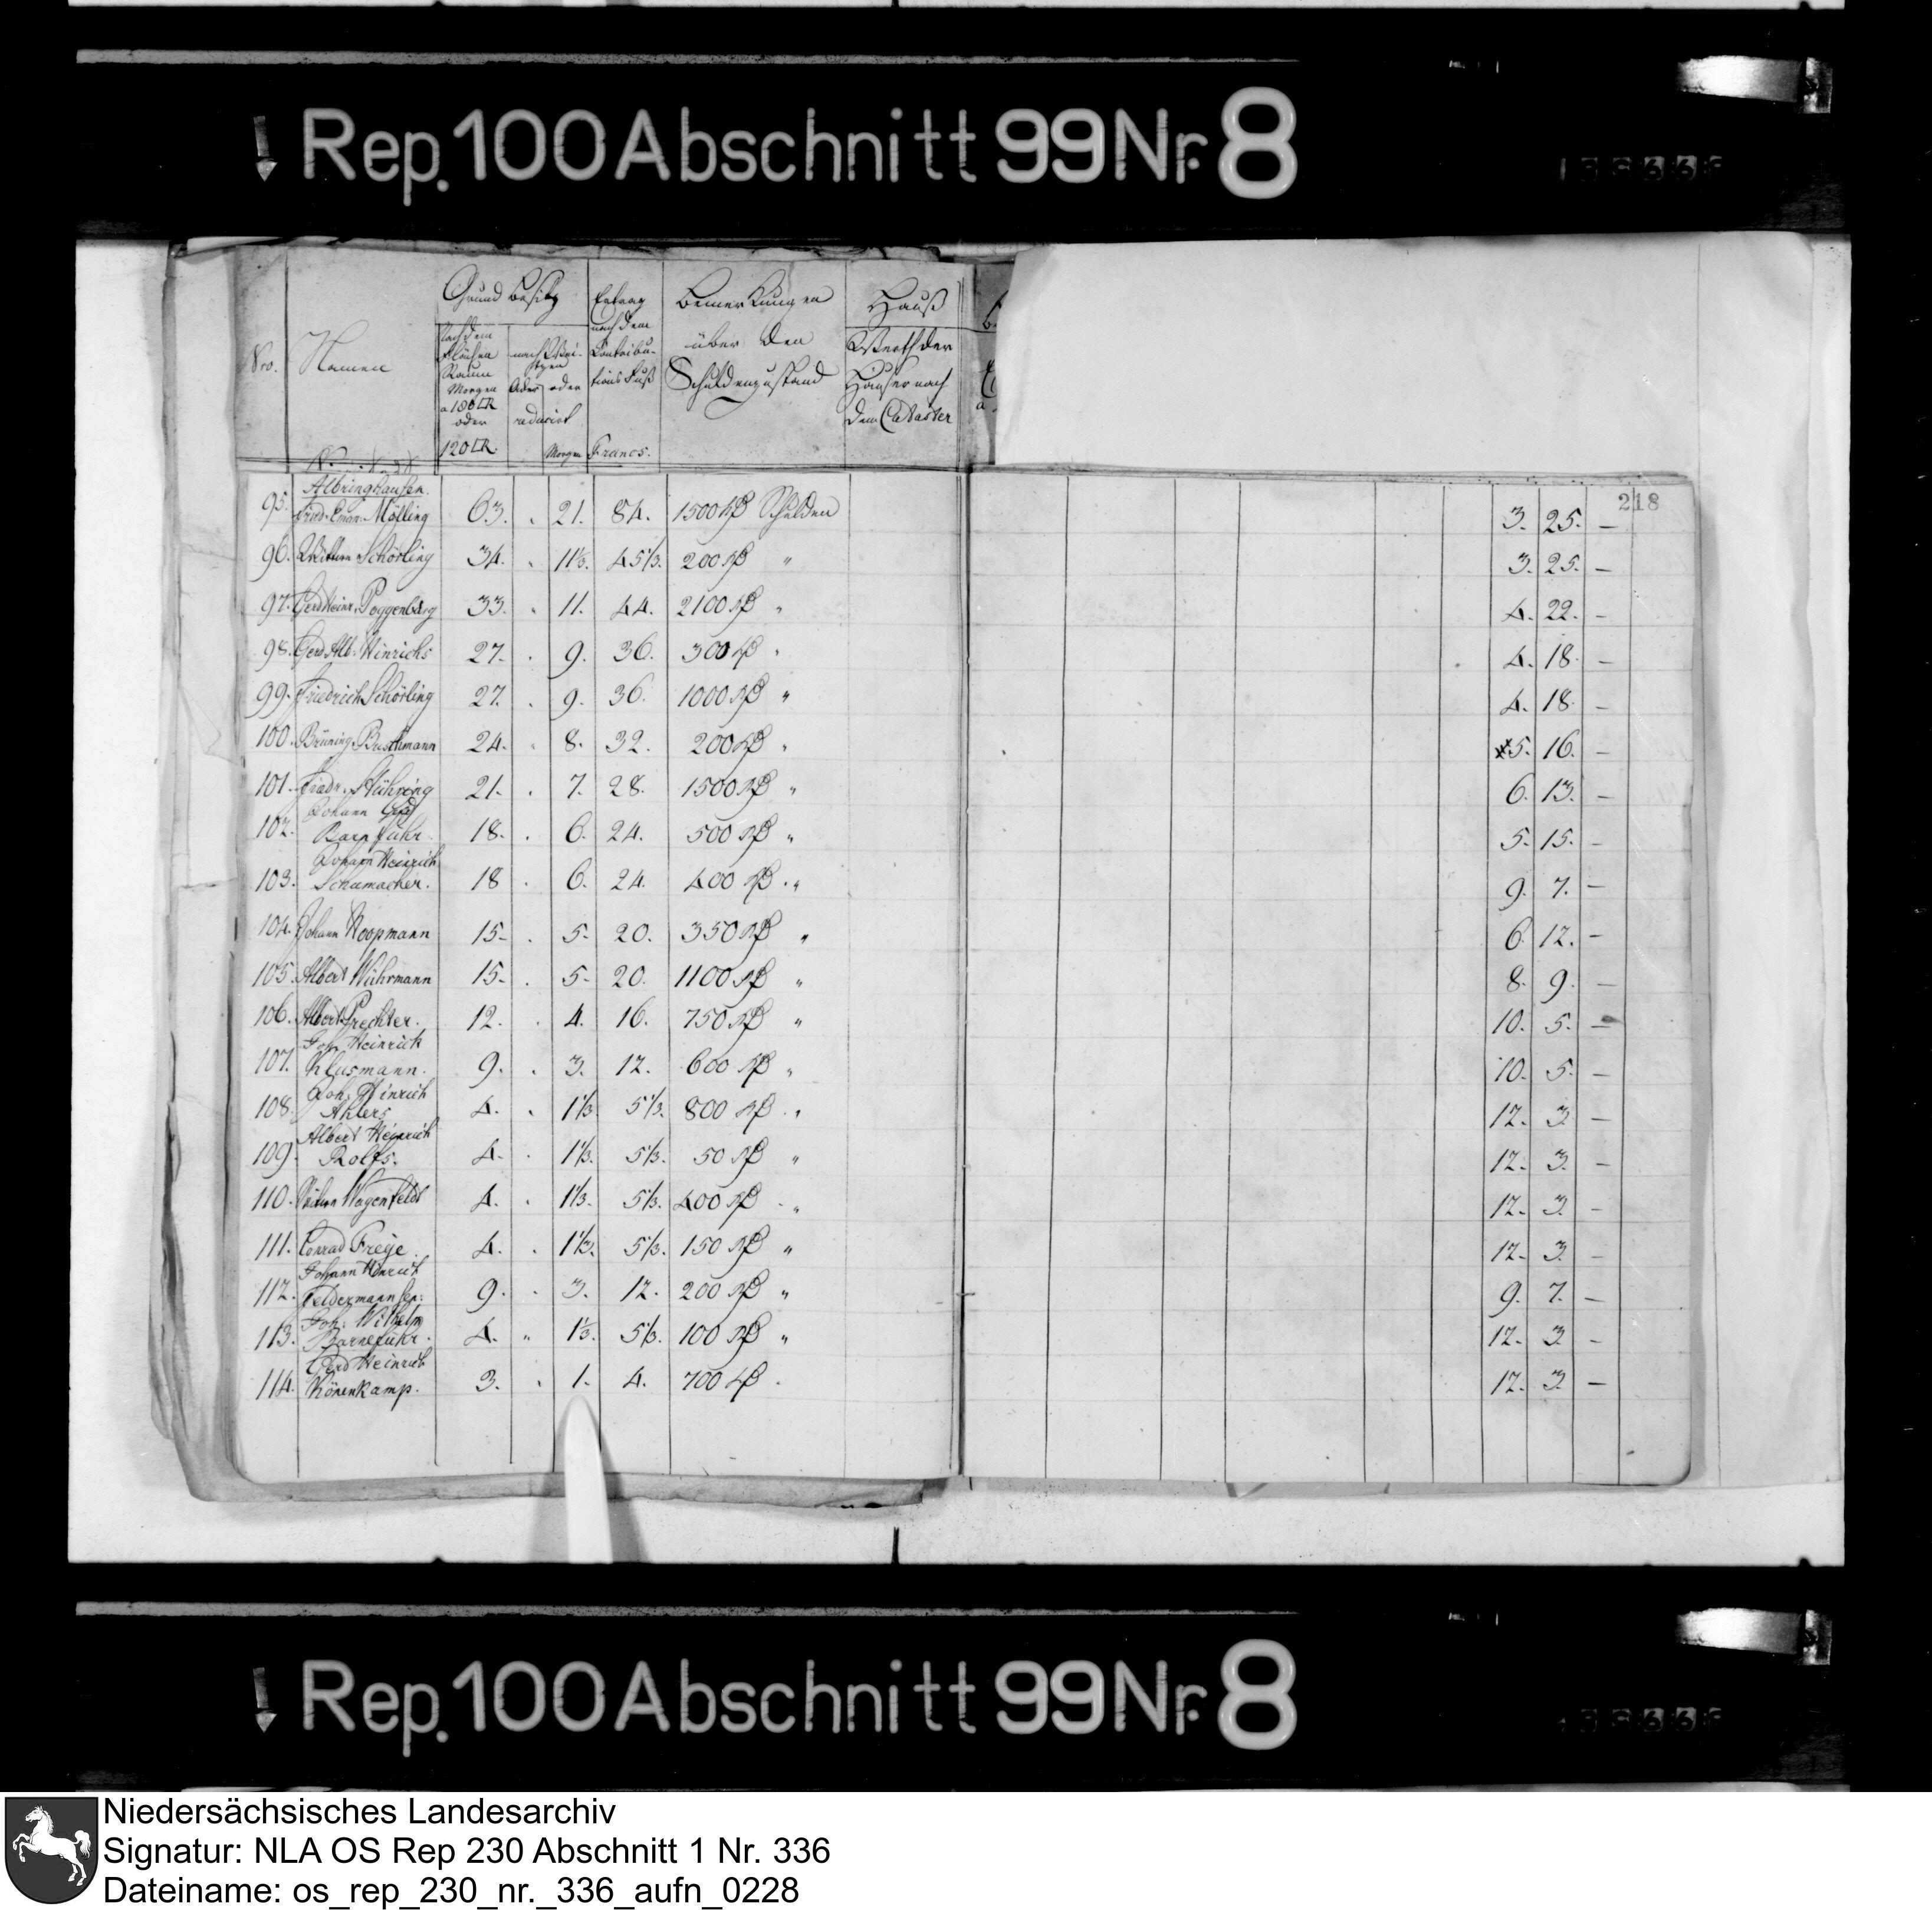 Rep. 100 Abschnitt 99 Nr. 8
Nro. Namen Grund Besitz Ertrag nach dem Contribu-tions Fuß Bemerkungen über den Schuldenzustand Hauß
Nach dem Flächen Raum Morgen a 180 □R oder 120 □R.
reducirt
Morgen Francs.
Werth der Häuser nach dem Cataster
218
Albringhausen.
95. Fried. Möhling 63. " 21. 84. 1500 Schulden 3. 25. —
96. Schörling 34. " 11⅓. 45⅓. 200 " 3. 25. —
97. Gerd Heinr. Poggenburg 33. " 11. 44. 2100 " 4. 22. —
98. Gerd Alb. Hinrichs 27. " 9. 36. 300 " 4. 18. —
99. Friedrich Schörling 27. " 9. 36. 1000 " 4. 18. —
100. Brüning Buschmann 24. " 8. 32. 200 " 5. 16. —
101. Friedr. Stühring 21. " 7. 28. 1500 " 6. 13. —
Johann Gerd
102. Barnfuhr 18. " 6. 24. 500 " 5. 15. —
Johann Heinrich
103. Schumacher. 18 " 6. 24. 400 " 9. 7. —
104. Johann Koopmann 15. " 5. 20. 350 " 6. 12. —
105. Albert Wührmann 15. " 5. 20. 1100 " 8. 9. —
106. Albert Prechter. 12. " 4. 16. 750 " 10. 5. —
Joh. Heinrich
107. Klusmann. 9. " 3. 12. 600 " 10. 5. —
Joh. Hinrich
108. Ahlers 4. " 1⅓ 5⅓. 800 " 12. 3. —
Albert Heinrich
109. Rolfs. 4. " 1⅓. 5⅓. 50 " 12. 3. —
110. Wagenfeldt 4. " 1⅓. 5⅓. 400 " 12. 3. —
111. Conrad Freye. 4. " 1⅓. 5⅓. 150 " 12. 3. —
Johann Hinrich
112. Feldermann sen: 9. " 3. 12. 200 " 9. 7. —
Joh: Wilhelm
113. Barnefuhr. 4. " 1⅓. 5⅓. 100 " 12. 3. —
Gerd Heinrich
114. Könenkamp. 3. " 1. 4. 700 12. 3. —
Rep. 100 Abschnitt 99 Nr. 8
Niedersächsisches Landesarchiv
Signatur: NLA OS Rep 230 Abschnitt 1 Nr. 336
Dateiname: os_rep_230_nr._336_aufn_0228